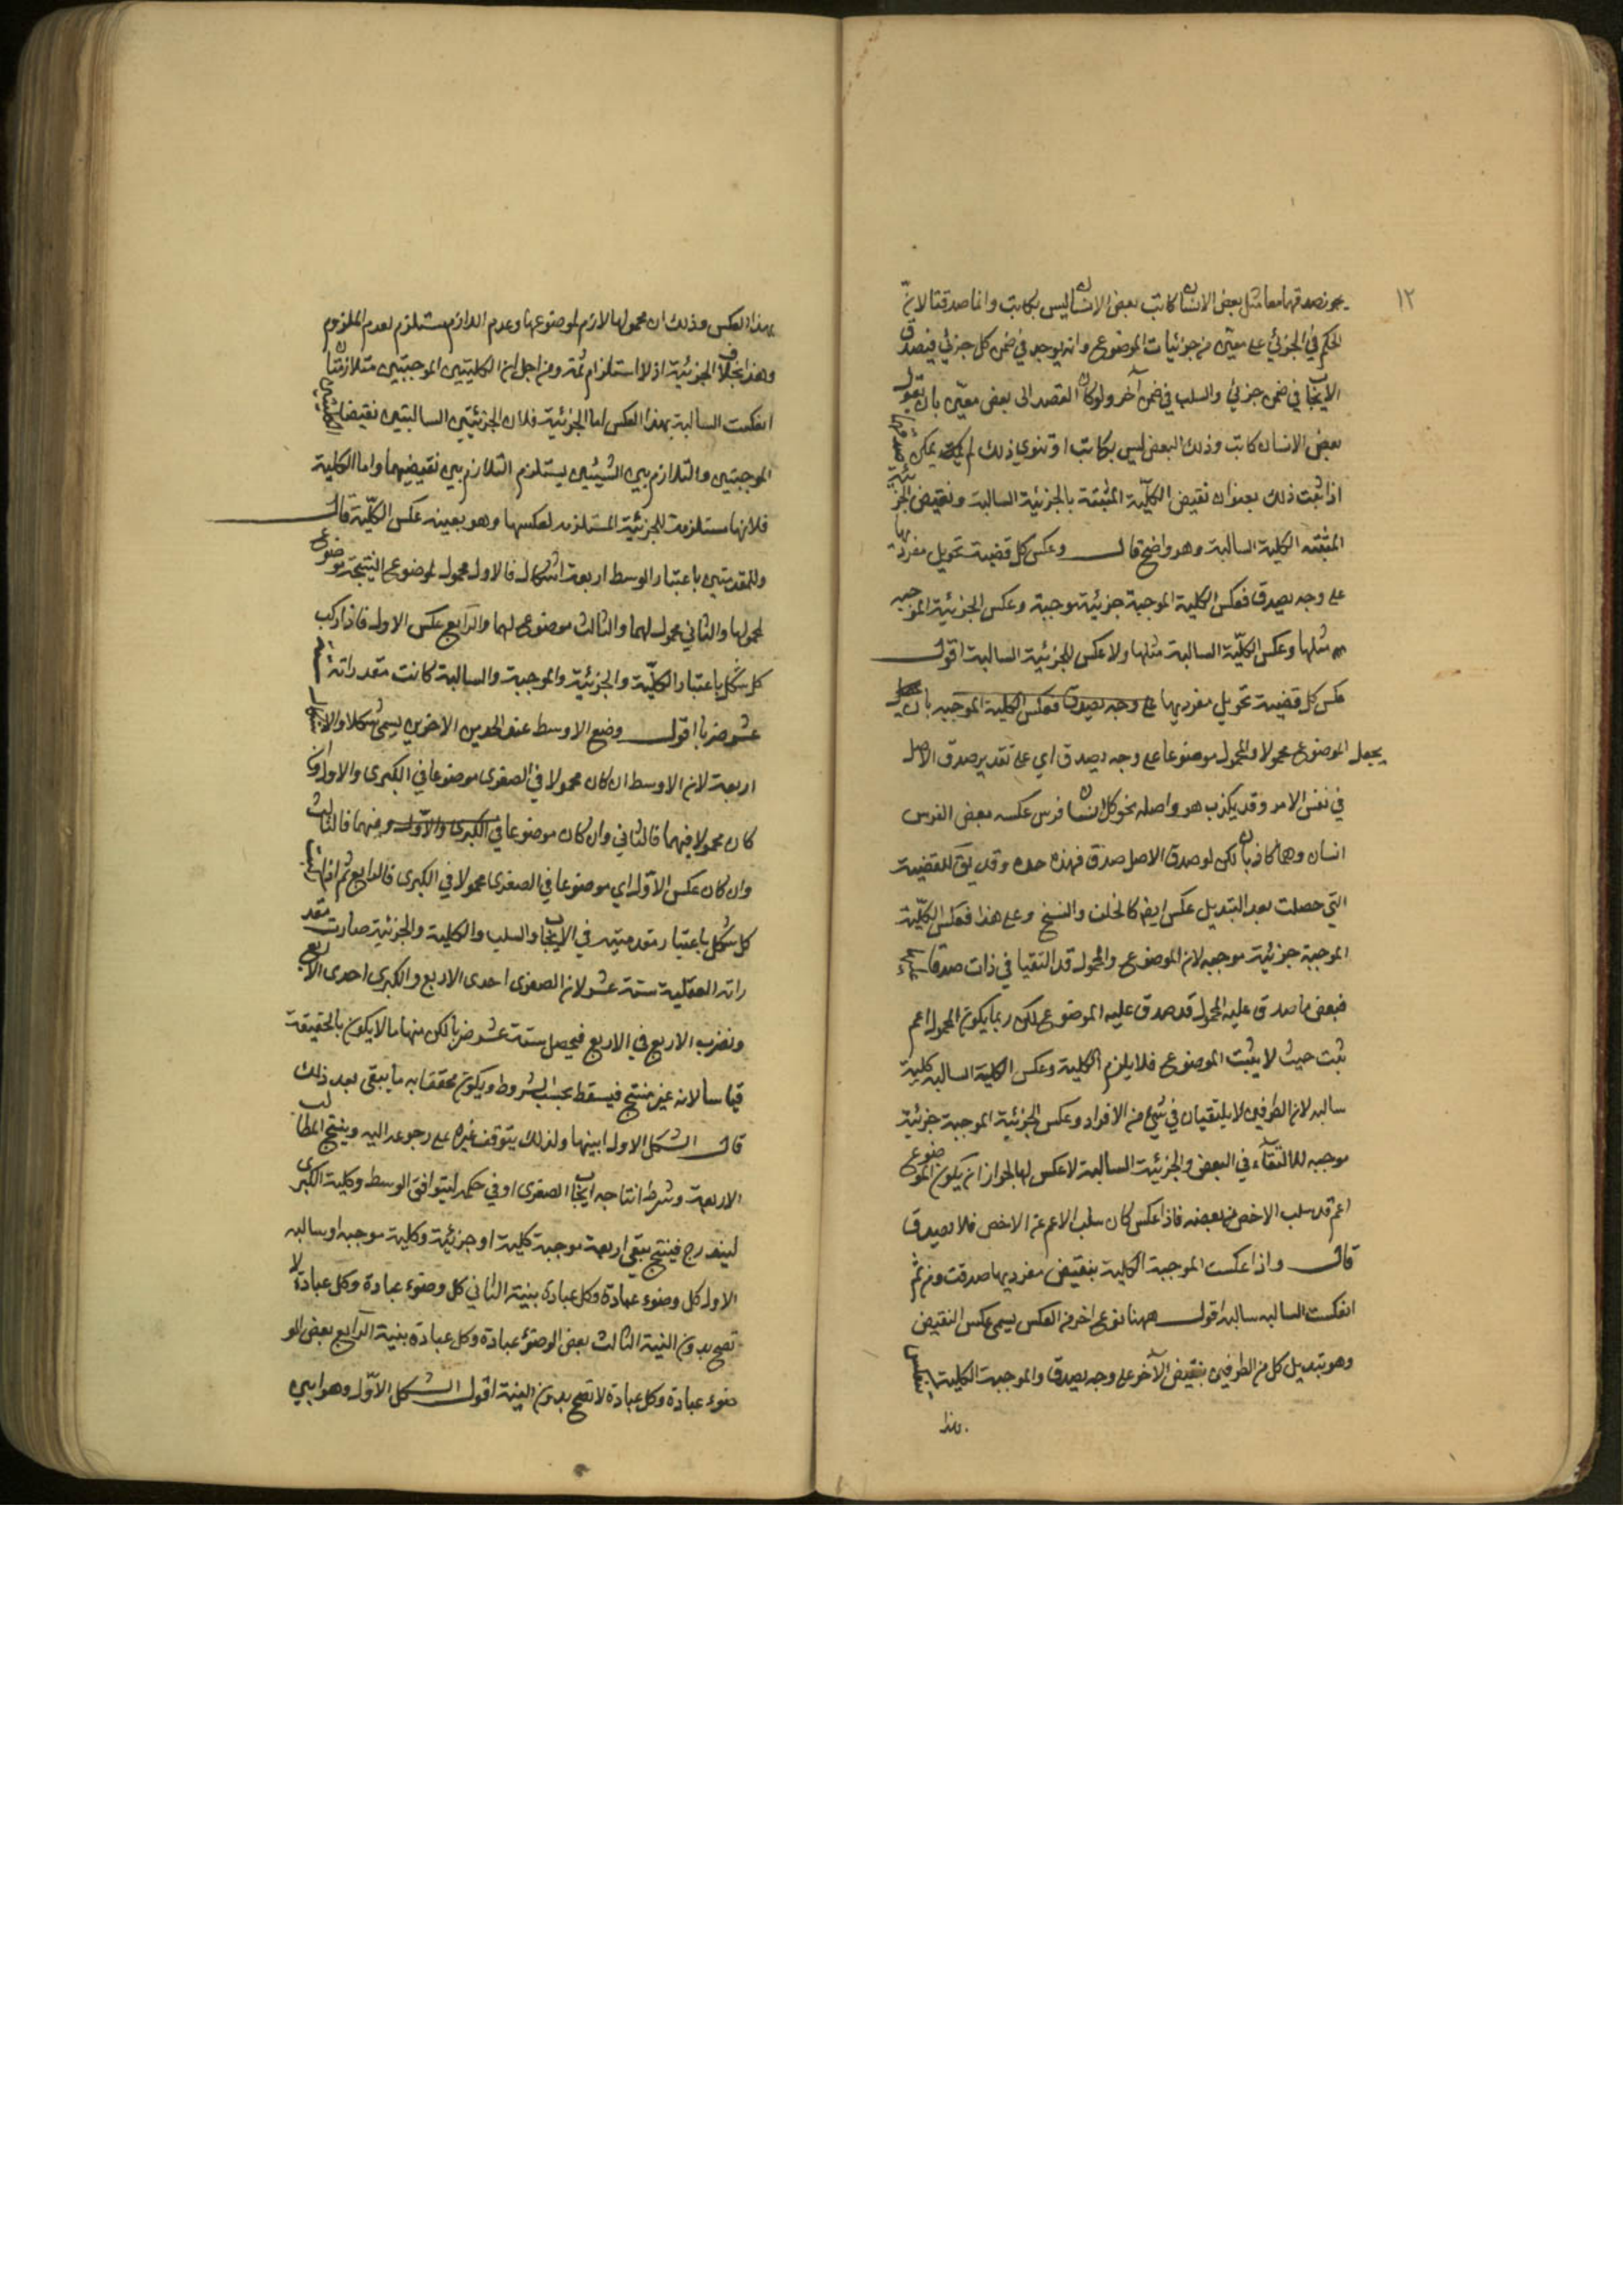 ١٢
يجوز صدقهما معا مثل بعض الانسان كاتب بعض الانسان ليس بكاتب وانما صدقتا لان
الحكم في الجزئي على معين من جزئيات الموضوع وانه يوجد في ضمن كل جزئي فيصدق
الايجاب في ضمن جزئي والسلب في ضمن آخر ولو كان القصد الى بعض معين بان تقول
بعض الانسان كاتب وذلك البعض ليس بكاتب او تنوي ذلك لم يمكن صدقهما
اذا ثبت ذلك بعنوان نقيض الكلية المثبتة بالجزئية السالبة ونقيض الجزئية
المثبته الكلية السالبة وهو واضح قال وعكس كل قضية تحويل مفرديها
على وجه يصدق فعكس الكلية الموجبة جزئية موجبة وعكس الجزئية الموجبه
مثلها وعكس الكلّية السالبة مثلها ولا عكس للجزئية السالبة اقول
عكس كل قضية تحويل مفرديها على وجه يصدق فعكس الكلية الموجبه بان
يجعل الموضوع محمولا والمحمول موضوعا على وجه يصدق اي على تقدير صدق الاصل
في نفس الامر وقد يكذب هو واصله نحو كل انسان فرس عكسه بعض الفرس
انسان وهما كاذبان لكن لو صدق الاصل صدق فهذه حده وقد يق للقضية
التي حصلت بعد التبديل عكس ايض كالخلق والنسخ وعلى هذا فعكس الكلّية
الموجبة جزئية موجبه لان الموضوع والمحمول قد التقيا في ذات صدقا عليه
فبعض ما صدق عليه المحمول قد صدق عليه الموضوع لكن ربما يكون المحمول اعم
ثبت حيث لا يثبت الموضوع فلا يلزم الكلية وعكس الكلية السالبه كلية
سالبه لان الطرفين لا يلتقيان في شيء من الافراد وعكس الجزئية الموجبة جزئية
موجبه للالتقآء في البعض والجزئية السالبة لا عكس لها لجواز ان يكون الموضوع
اعم قد سلب الاخص من بعضه فاذا عكس كان سلب الاعم عن الاخص فلا يصدق
قال واذا عكست الموجبة الكلية بنقيض مفرديها صدقت ومن ثم
انعكست السالبه سالبه اقول ههنا نوع اخر من العكس يسمى عكس النقيض
وهو تبديل كل من الطرفين بنقيض الآخر على وجه يصدق والموجبة الكلية
بهذا
بهذا العكس وذلك ان محمولها لازم لموضوعها وعدم اللازم يستلزم لعدم الملزوم
وهذا بخلاف الجزئية اذ لا استلزام ثمة ومن اجل ان الكليتين الموجبتين متلازمتان
انعكست السالبة بهذا العكس اما الجزئية فلان الجزئيتين السالبتين نقيضا
الموجبتين والتلازم بين الشيئين يستلزم التلازم بين نقيضيهما واما الكلية
فلانها مستلزمة للجزئية المستلزمه لعكسها وهو بعينه عكس الكلّية قال
وللمقدمتين باعتبار الوسط اربعة اشكال فالاول محمول لموضوع النتيجة موضوع
لمحمولها والثاني محمول لهما والثالث موضوع لهما والرابع عكس الاول فاذا ركب
كل شكل باعتبار الكلّية والجزئية والموجبة والسالبة كانت مقدراته
عشر ضربا اقول وضع الاوسط عند الحدين الاخرين يسمى شكلا
اربعة لان الاوسط ان كان محمولا في الصغرى موضوعا في الكبرى والاول وان
كان محمولا فيهما فالثاني وان كان موضوعا في الكبرى والاول فيهما فالثالث
وان كان عكس الاوّل اي موضوعا في الصغرى محمولا في الكبرى فالرابع ثم اذا
كل شكل باعتبار مقدمتيه في الايجاب والسلب والكلية والجزئية صارت مقد
راته العقلية ستة عشر لان الصغرى احدى الاربع والكبرى احدى الاربع
ونضرب الاربع في الاربع فيحصل ستة عشر ضربا لكن منها ما لا يكون بالحقيقة
قياسا لانه غير منتج فيسقط بحسب الشروط ويكون محققا به ما يبقى بعد ذلك
قال الشكل الاول ابينها ولذلك يتوقف غيره على رجوعه اليه وينتج المطالب
الاربعة وشرط انتاجه ايجاب الصغرى او في حكمه ليتوافق الوسط وكلية الكبرى
ليندرج فينتج يبقى اربعة موجبة كلية او جزئية وكلية موجبه او سالبه
الاول كل وضوء عبادة وكل عبادة بنية الثاني كل وضوء عبادة وكل عبادة لا
تصح بدون النية الثالث بعض الوضوء عبادة وكل عبادة بنية الرابع بعض الو
ضوء عبادة وكل عبادة لا تصح بدون النية اقول الشكل الاوّل وهو ابين